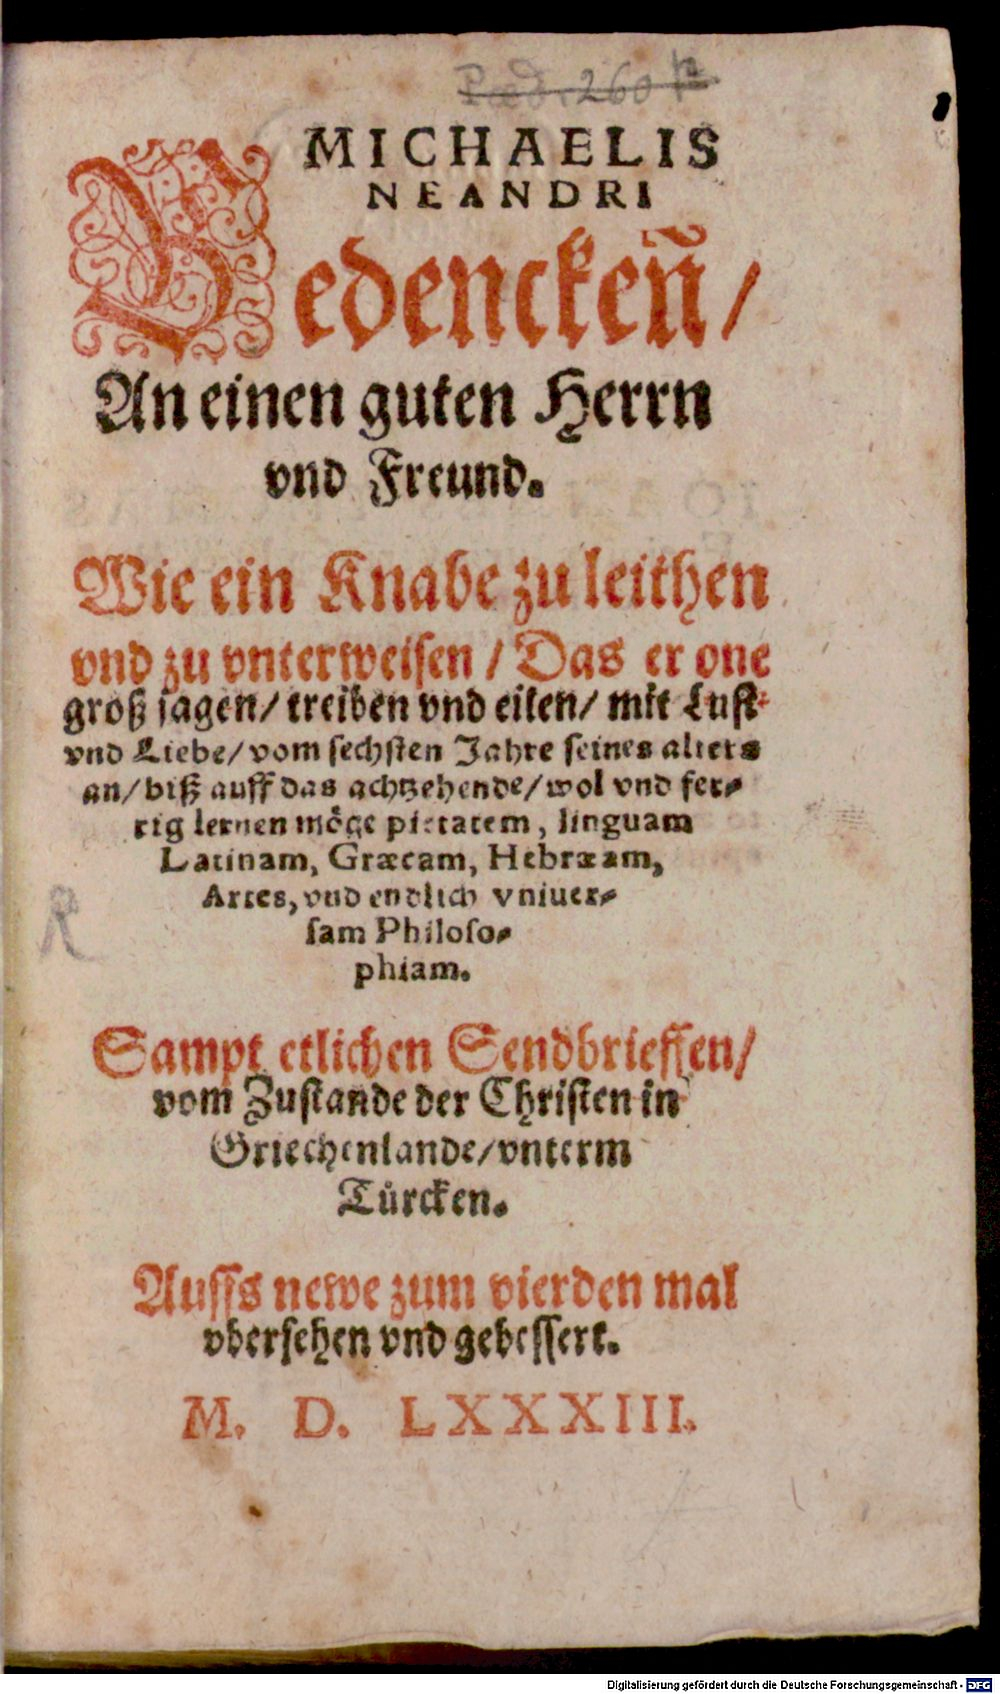 Pæd. 260 p
MICHAELIS
NEANDRI
Bedencken̄/
An einen guten Herrn
vnd Freund.
Wie ein Knabe zu leithen
vnd zu vnterweisen / Das er one
groß jagen/ treiben vnd eilen/ mit Lust
vnd Liebe/ vom sechsten Jahre seines alters
an/ biß auff das achtzehende/ wol vnd fer⸗
tig lernen möge pietatem, linguam
Latinam, Græcam, Hebræam,
Artes, vnd endlich vniuer⸗
sam Philoso⸗
phiam.
Sampt etlichen Sendbrieffen/
vom Zustande der Christen in
Griechenlande/ vnterm
Türcken.
Auffs newe zum vierden mal
vbersehen vnd gebessert.
M. D. LXXXIII.
R
Digitalisierung gefördert durch die Deutsche Forschungsgemeinschaft - DFG